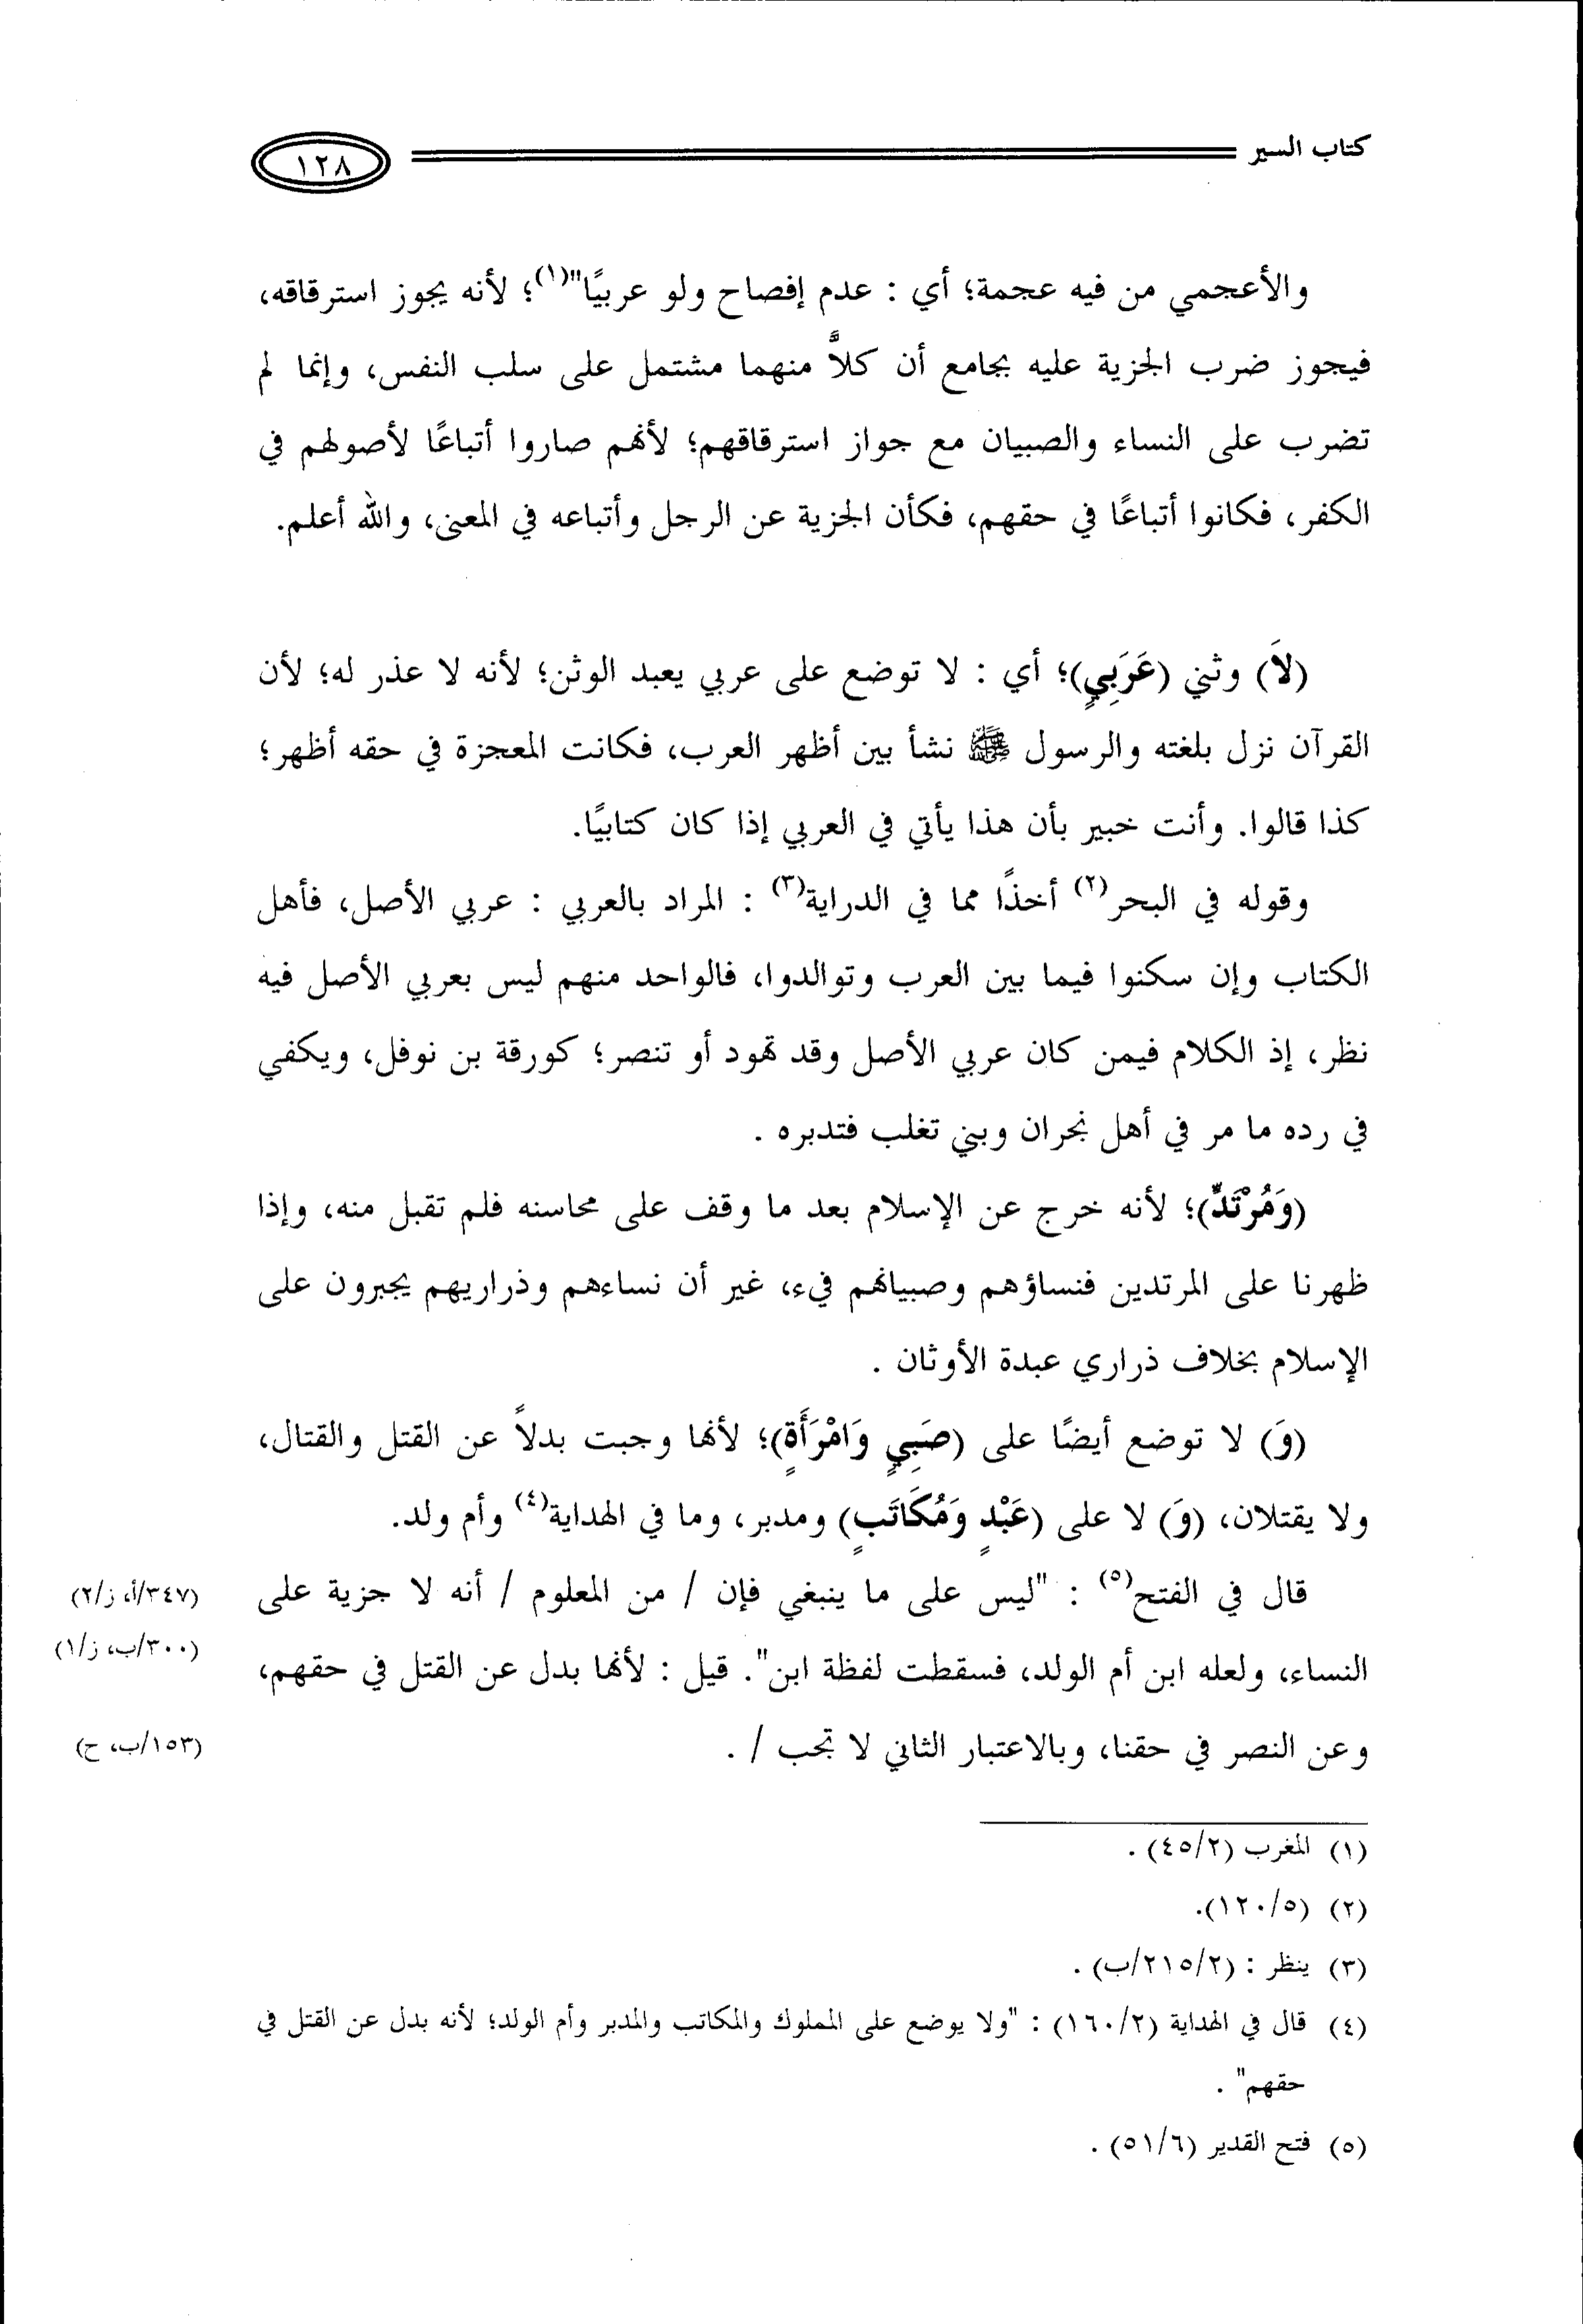 كتاب السير
١٢٨
والأعجمي من فيه عجمة؛ أي : عدم إفصاح ولو عربيًا"(١)؛ لأنه يجوز استرقاقه،
فيجوز ضرب الجزية عليه بجامع أن كلاًّ منهما مشتمل على سلب النفس، وإنما لم
تضرب على النساء والصبيان مع جواز استرقاقهم؛ لأنهم صاروا أتباعًا لأصولهم في
الكفر، فكانوا أتباعًا في حقهم، فكأن الجزية عن الرجل وأتباعه في المعنى، والله أعلم.
(لاَ) وثني (عَرَبِيٍ)؛ أي : لا توضع على عربي يعبد الوثن؛ لأنه لا عذر له؛ لأن
القرآن نزل بلغته والرسول ﷺ نشأ بين أظهر العرب، فكانت المعجزة في حقه أظهر؛
كذا قالوا. وأنت خبير بأن هذا يأتي في العربي إذا كان كتابيًا.
وقوله في البحر(٢) أخذًا مما في الدراية(٣) : المراد بالعربي : عربي الأصل، فأهل
الكتاب وإن سكنوا فيما بين العرب وتوالدوا، فالواحد منهم ليس بعربي الأصل فيه
نظر، إذ الكلام فيمن كان عربي الأصل وقد تهود أو تنصر؛ كورقة بن نوفل، ويكفي
في رده ما مر في أهل نجران وبني تغلب فتدبره .
(وَمُرْتَدٍّ)؛ لأنه خرج عن الإسلام بعد ما وقف على محاسنه فلم تقبل منه، وإذا
ظهرنا على المرتدين فنساؤهم وصبيانهم فيء، غير أن نساءهم وذراريهم يجبرون على
الإسلام بخلاف ذراري عبدة الأوثان .
(وَ) لا توضع أيضًا على (صَبِيٍ وَامْرَأَةٍ)؛ لأنها وجبت بدلاً عن القتل والقتال،
ولا يقتلان، (وَ) لا على (عَبْدٍ وَمُكَاتَبٍ) ومدبر، وما في الهداية(٤) وأم ولد.
قال في الفتح(٥) : "ليس على ما ينبغي فإن / من المعلوم / أنه لا جزية على
(٣٤٧/أ، ز/٢)
(٣٠٠/ب، ز/١)
النساء، ولعله ابن أم الولد، فسقطت لفظة ابن". قيل : لأنها بدل عن القتل في حقهم،
وعن النصر في حقنا، وبالاعتبار الثاني لا تجب / .
(١٥٣/ب، ح)
(١) المغرب (٤٥/٢) .
(٢) (١٢٠/٥).
(٣) ينظر : (٢١٥/٢/ب) .
(٤) قال في الهداية (١٦٠/٢) : "ولا يوضع على المملوك والمكاتب والمدبر وأم الولد؛ لأنه بدل عن القتل في
حقهم" .
(٥) فتح القدير (٥١/٦) .